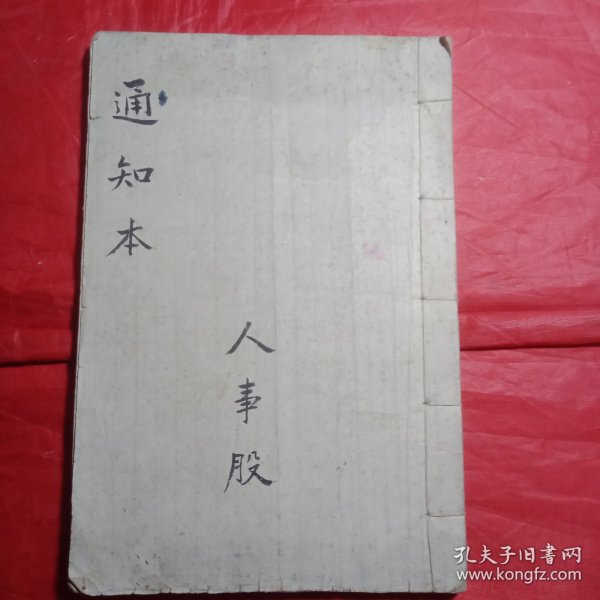 通知本
人事股
孔夫子旧书网
www.kongfz.com